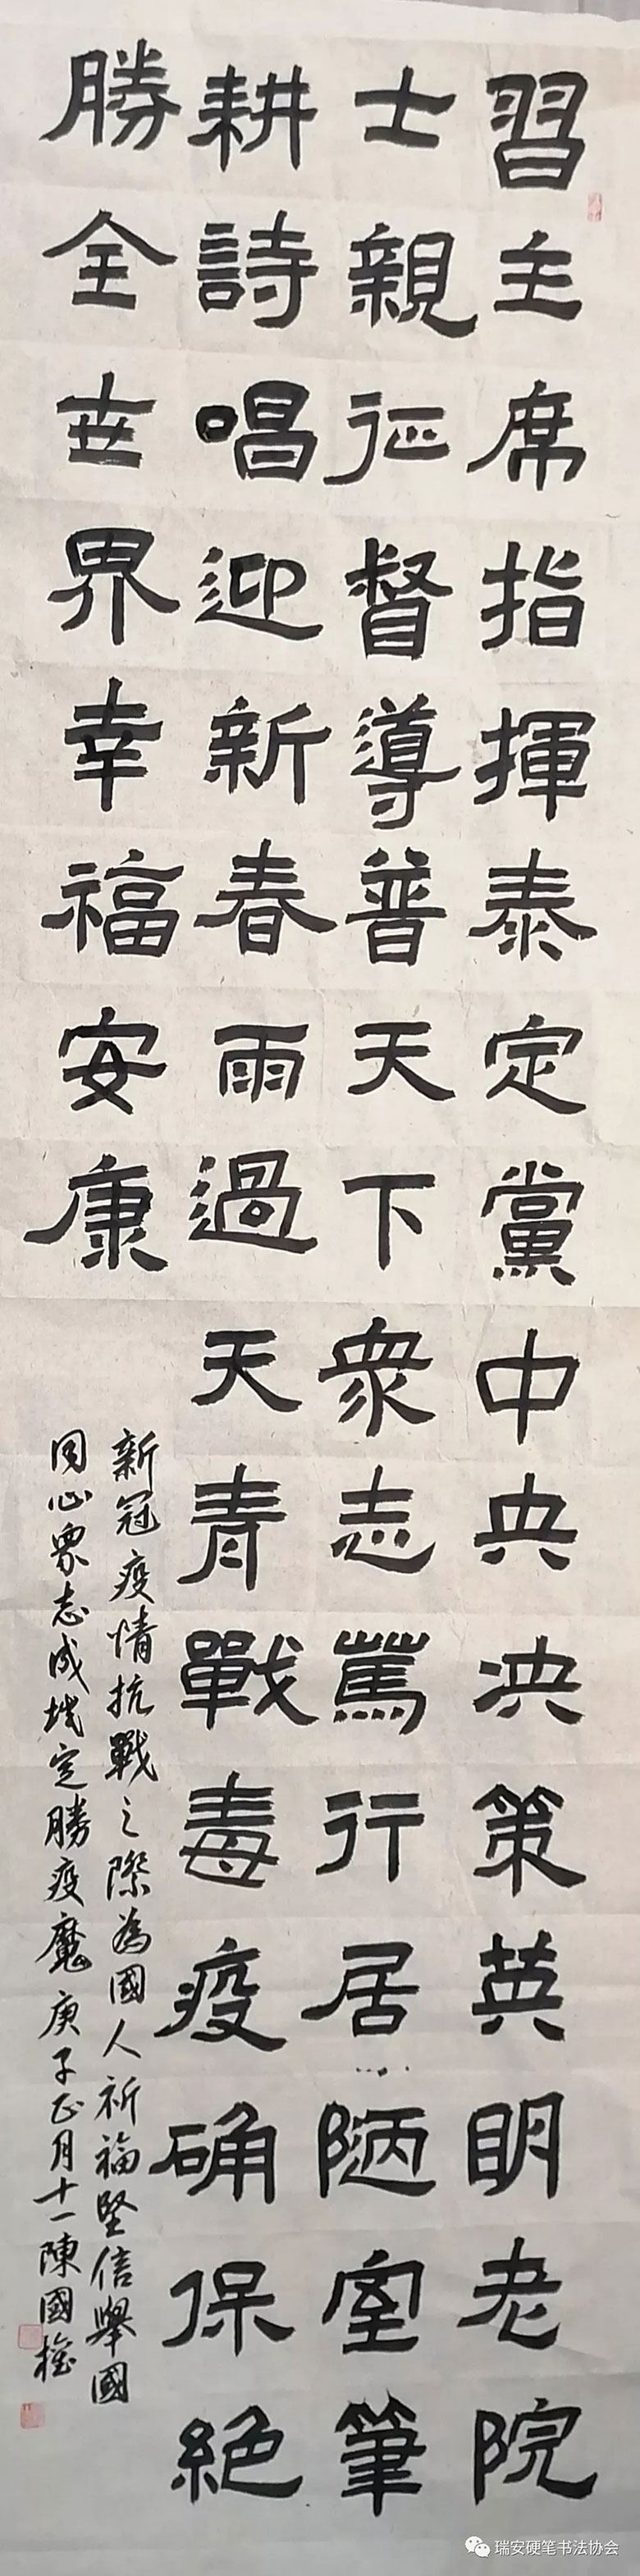 習主席指揮泰定黨中央决策英明老院
士親征督導普天下衆志篤行居陋室筆
耕詩唱迎新春雨過天青戰毒疫确保絕
勝全世界幸福安康
新冠疫情抗戰之際為國人祈福堅信舉國
同心眾志成城定勝疫魔庚子正月十一陳國權
瑞安硬笔书法协会